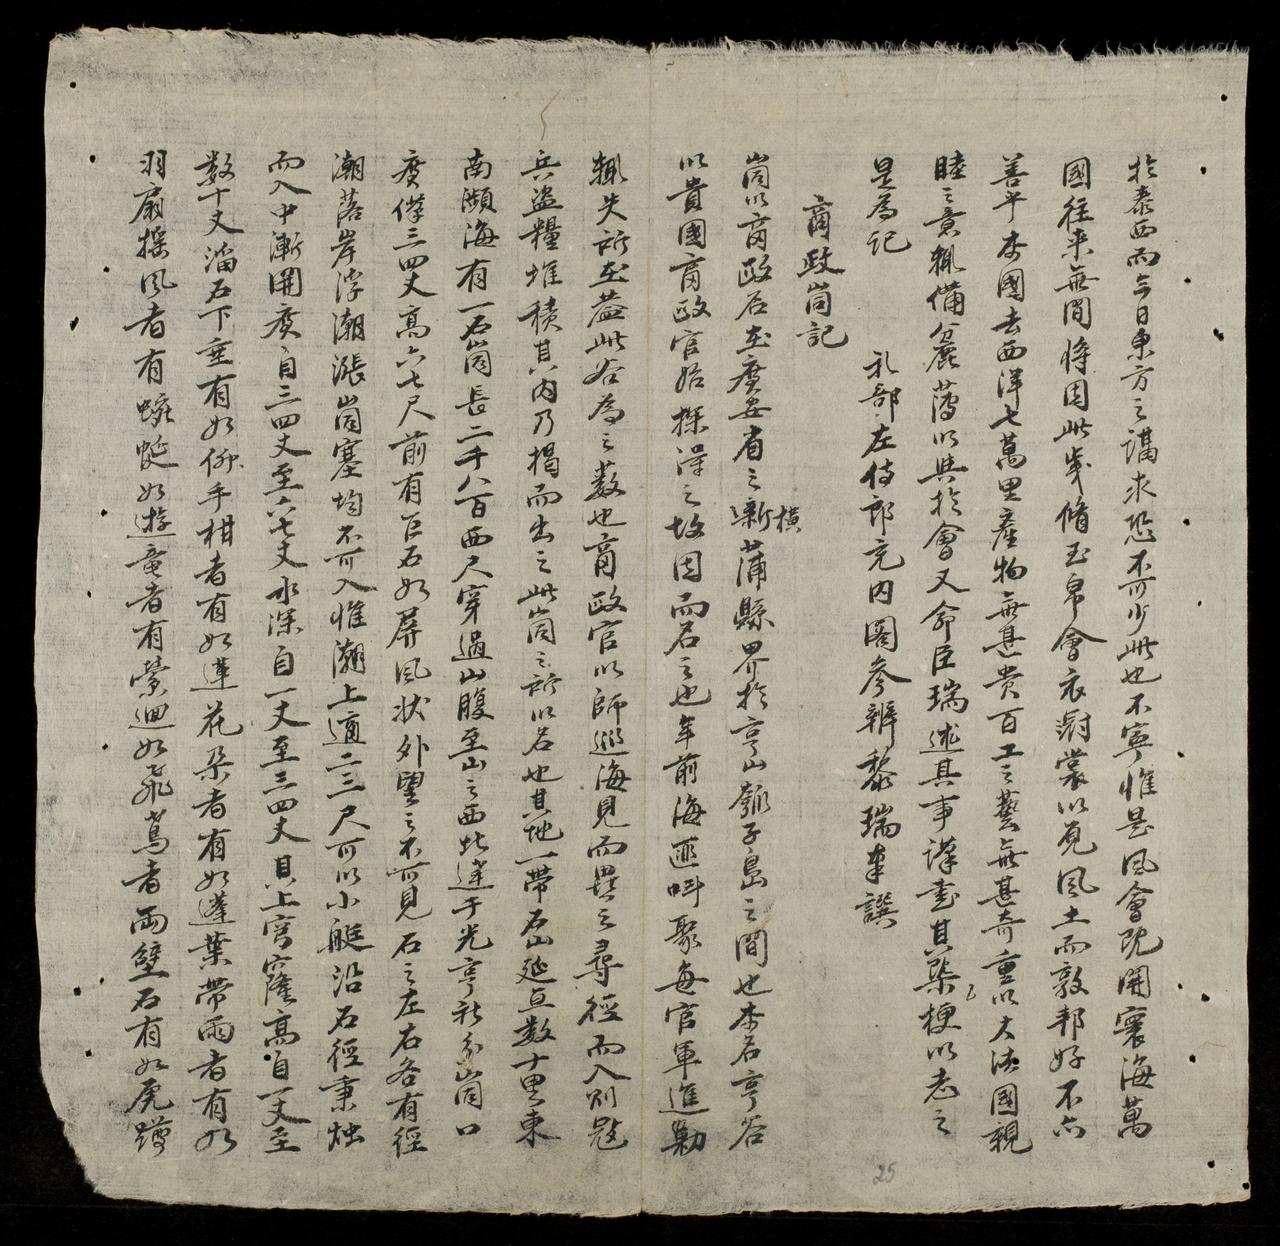 於泰西而云日東方之講求恐不可少此也不寧惟是風會既開寰海萬
國往來無間將因此歲脩玉帛會衣對裳以覓風土而敦邦好不亦
善乎本國去西洋七萬里產物無甚貴百工之藝無甚奇重以大法國親
睦之意輒備麄薄以與於會又命臣瑞述其事謹書其槩梗以志之
是爲記 礼部左侍郎充内閣參辦黎瑞奉譔
商政峝記
峝以商政名在廣安省之橫蒲縣界於亨山瓠子島之間也本名亨谷
以貴國商政官始探得之故因而名之也年前海匪叫聚每官軍進勦
輒失所在葢此谷爲之藪也商政官以師巡海見而異之尋徑而入則寇
兵盜糧堆積其内乃揭而出之此峝之所以名也其地一帶石山延亘數十里東
南瀕海有一石峝長二千八百西尺穿過山腹至山之西北達于光亨社分峝口
廣僅三四丈高六七尺前有巨石如屏風狀外望之不可見石之左右各有徑
潮落岸浮潮漲峝塞均不可入惟潮上適二三尺可以小艇沿石徑秉燭
而入中漸開廣自三四丈至六七丈水深自一丈至三四丈其上穹窿高自一丈至
数十丈溜石下垂有如佛手柑者有如蓮花朶者有如蓮葉帶雨者有如
羽扇搖風者有蜿蜒如遊竜者有縈迴如飛鳶者兩壁石有如虎蹲
25